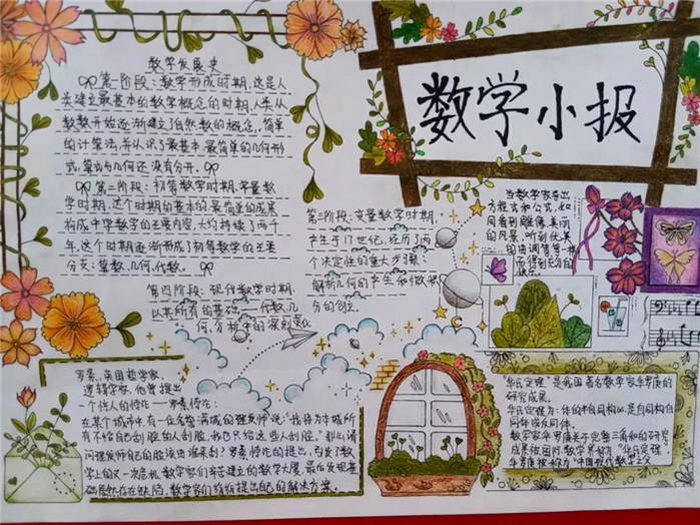 数学小报
数学发展史
第一阶段：数学形成时期,这是人
类建立最基本的数学概念的时期,人类从
数数开始逐渐建立了自然数的概念,简单
的计算法,并认识了最基本最简单的几何形
式,算术与几何还没有分开。
第二阶段：初等数学时期,常量数
学时期,这个时期的基本的最简单的成果
构成中学数学的主要内容,大约持续了两千
年,这个时期逐渐形成了初等数学的主要
分支：算数、几何、代数。
第三阶段：变量数学时期,
产生于17世纪,经历了两
个决定性的重大步骤
解析几何的产生和微积
分的创立。
第四阶段：现代数学时期
以其所有的基础——代数、几
何、分析中的深刻变化
当数学家导出
方程式和公式,如
同看到雕像、美丽
的风景,听到优美
的曲调等等一样
而得到充分的
快乐
罗素,英国哲学家、
逻辑学家,他曾提出
一个惊人的悖论——罗素悖论：
在某个城市中有一位名誉满城的理发师说:“我将为本城所
有不给自己刮脸的人刮脸,我也只给这些人刮脸。”那么请
问理发师自己的脸该由谁来刮？罗素悖论的提出,引发了数
学上的又一次危机,数学家们辛苦建立的数学大厦,最后发现基
础居然存在缺陷,数学家们纷纷提出自己的解决方案。
“华氏定理”是我国著名数学家华罗庚的
研究成果。
华氏定理为：体的半自同构必是自同构或自
同体或反同体。
数学家华罗庚关于完整三角和的研究
成果被国际数学界称为“华氏定理”,
华罗庚被称为“中国现代数学之父”